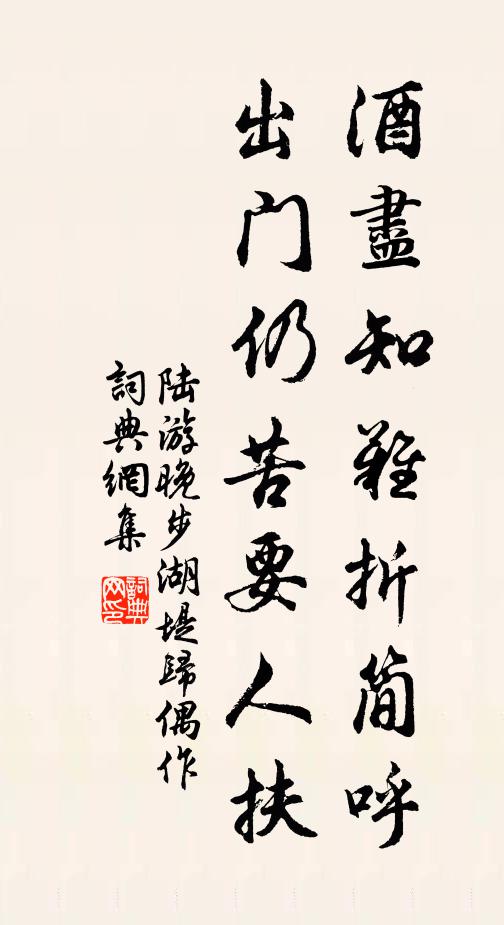 酒盡知難折簡呼
出門仍苦要人扶
陆游晚步湖堤歸偶作
詞典網集
詞典網印